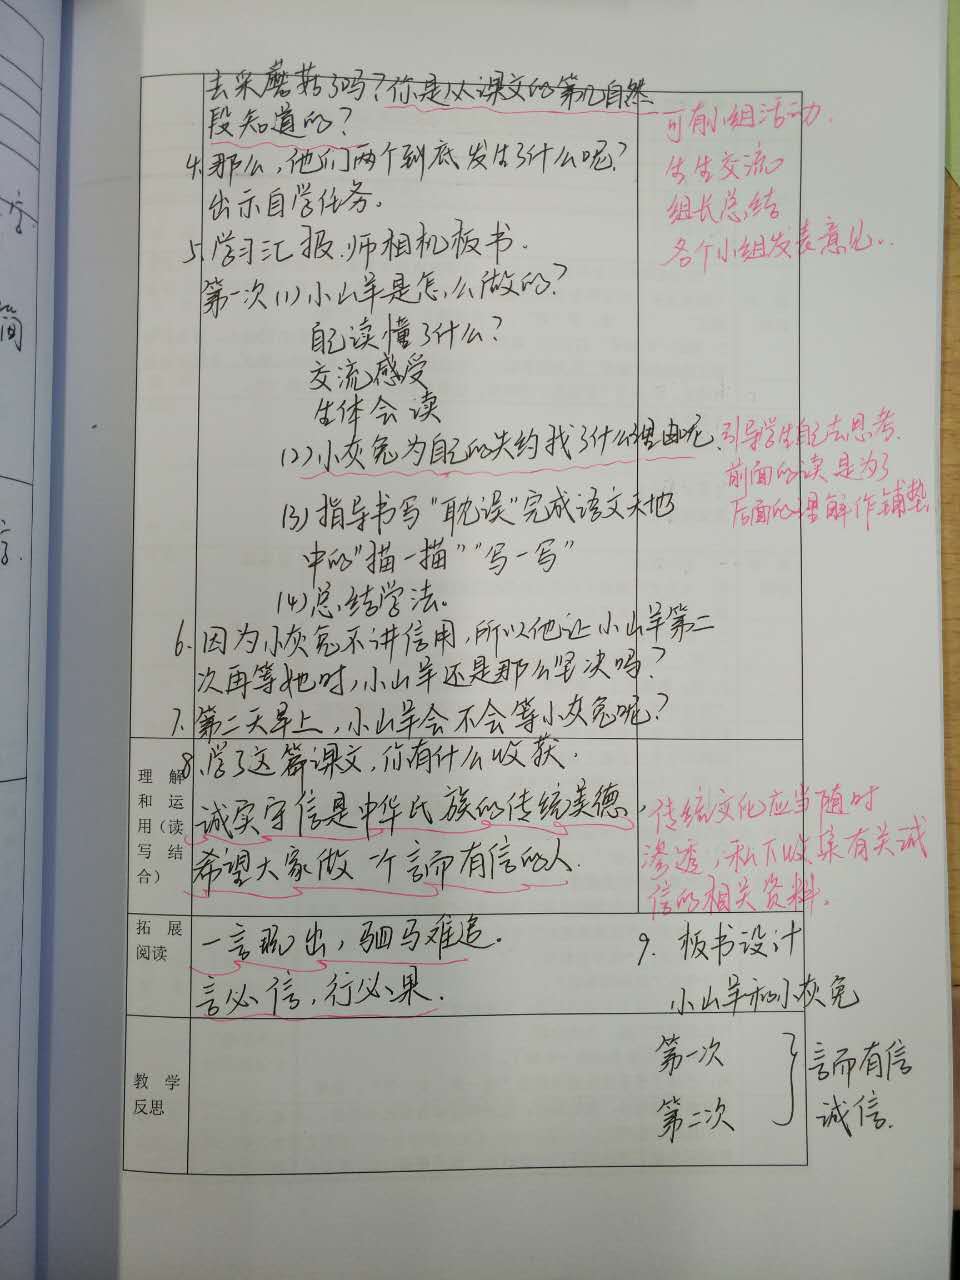 去采蘑菇了吗?你是从课文的第几自然
段知道的?
4.那么,他们两个到底发生了什么呢?
出示自学任务。
5.学习汇报.师相机板书.
第一次(1)小山羊是怎么做的?
自己读懂了什么?
交流感受
生体会读
(2)小灰兔为自己的失约找了什么理由呢.
(3)指导书写"耽误"完成语文天地
中的"描一描""写一写"
(4)总结学法。
6.因为小灰兔不讲信用,所以他让小山羊第二
次再等她时,小山羊还是那么坚决吗?
7.第二天早上,小山羊会不会等小灰兔呢?
8.学了这篇课文,你有什么收获.
诚实守信是中华民族的传统美德,
希望大家做一个言而有信的人.
一言既出,驷马难追.
言必信,行必果.
可有小组活动.
生生交流
组长总结
各个小组发表意见..
引导学生自己去思考.
前面的读是为了
后面的理解作铺垫.
传统文化应当随时
渗透,私下收集有关诚
信的相关资料。
理解
和运
用(读
写结
合)
拓展
阅读
教学
反思
9.板书设计
小山羊和小灰兔
第一次
第二次
言而有信
诚信.
间